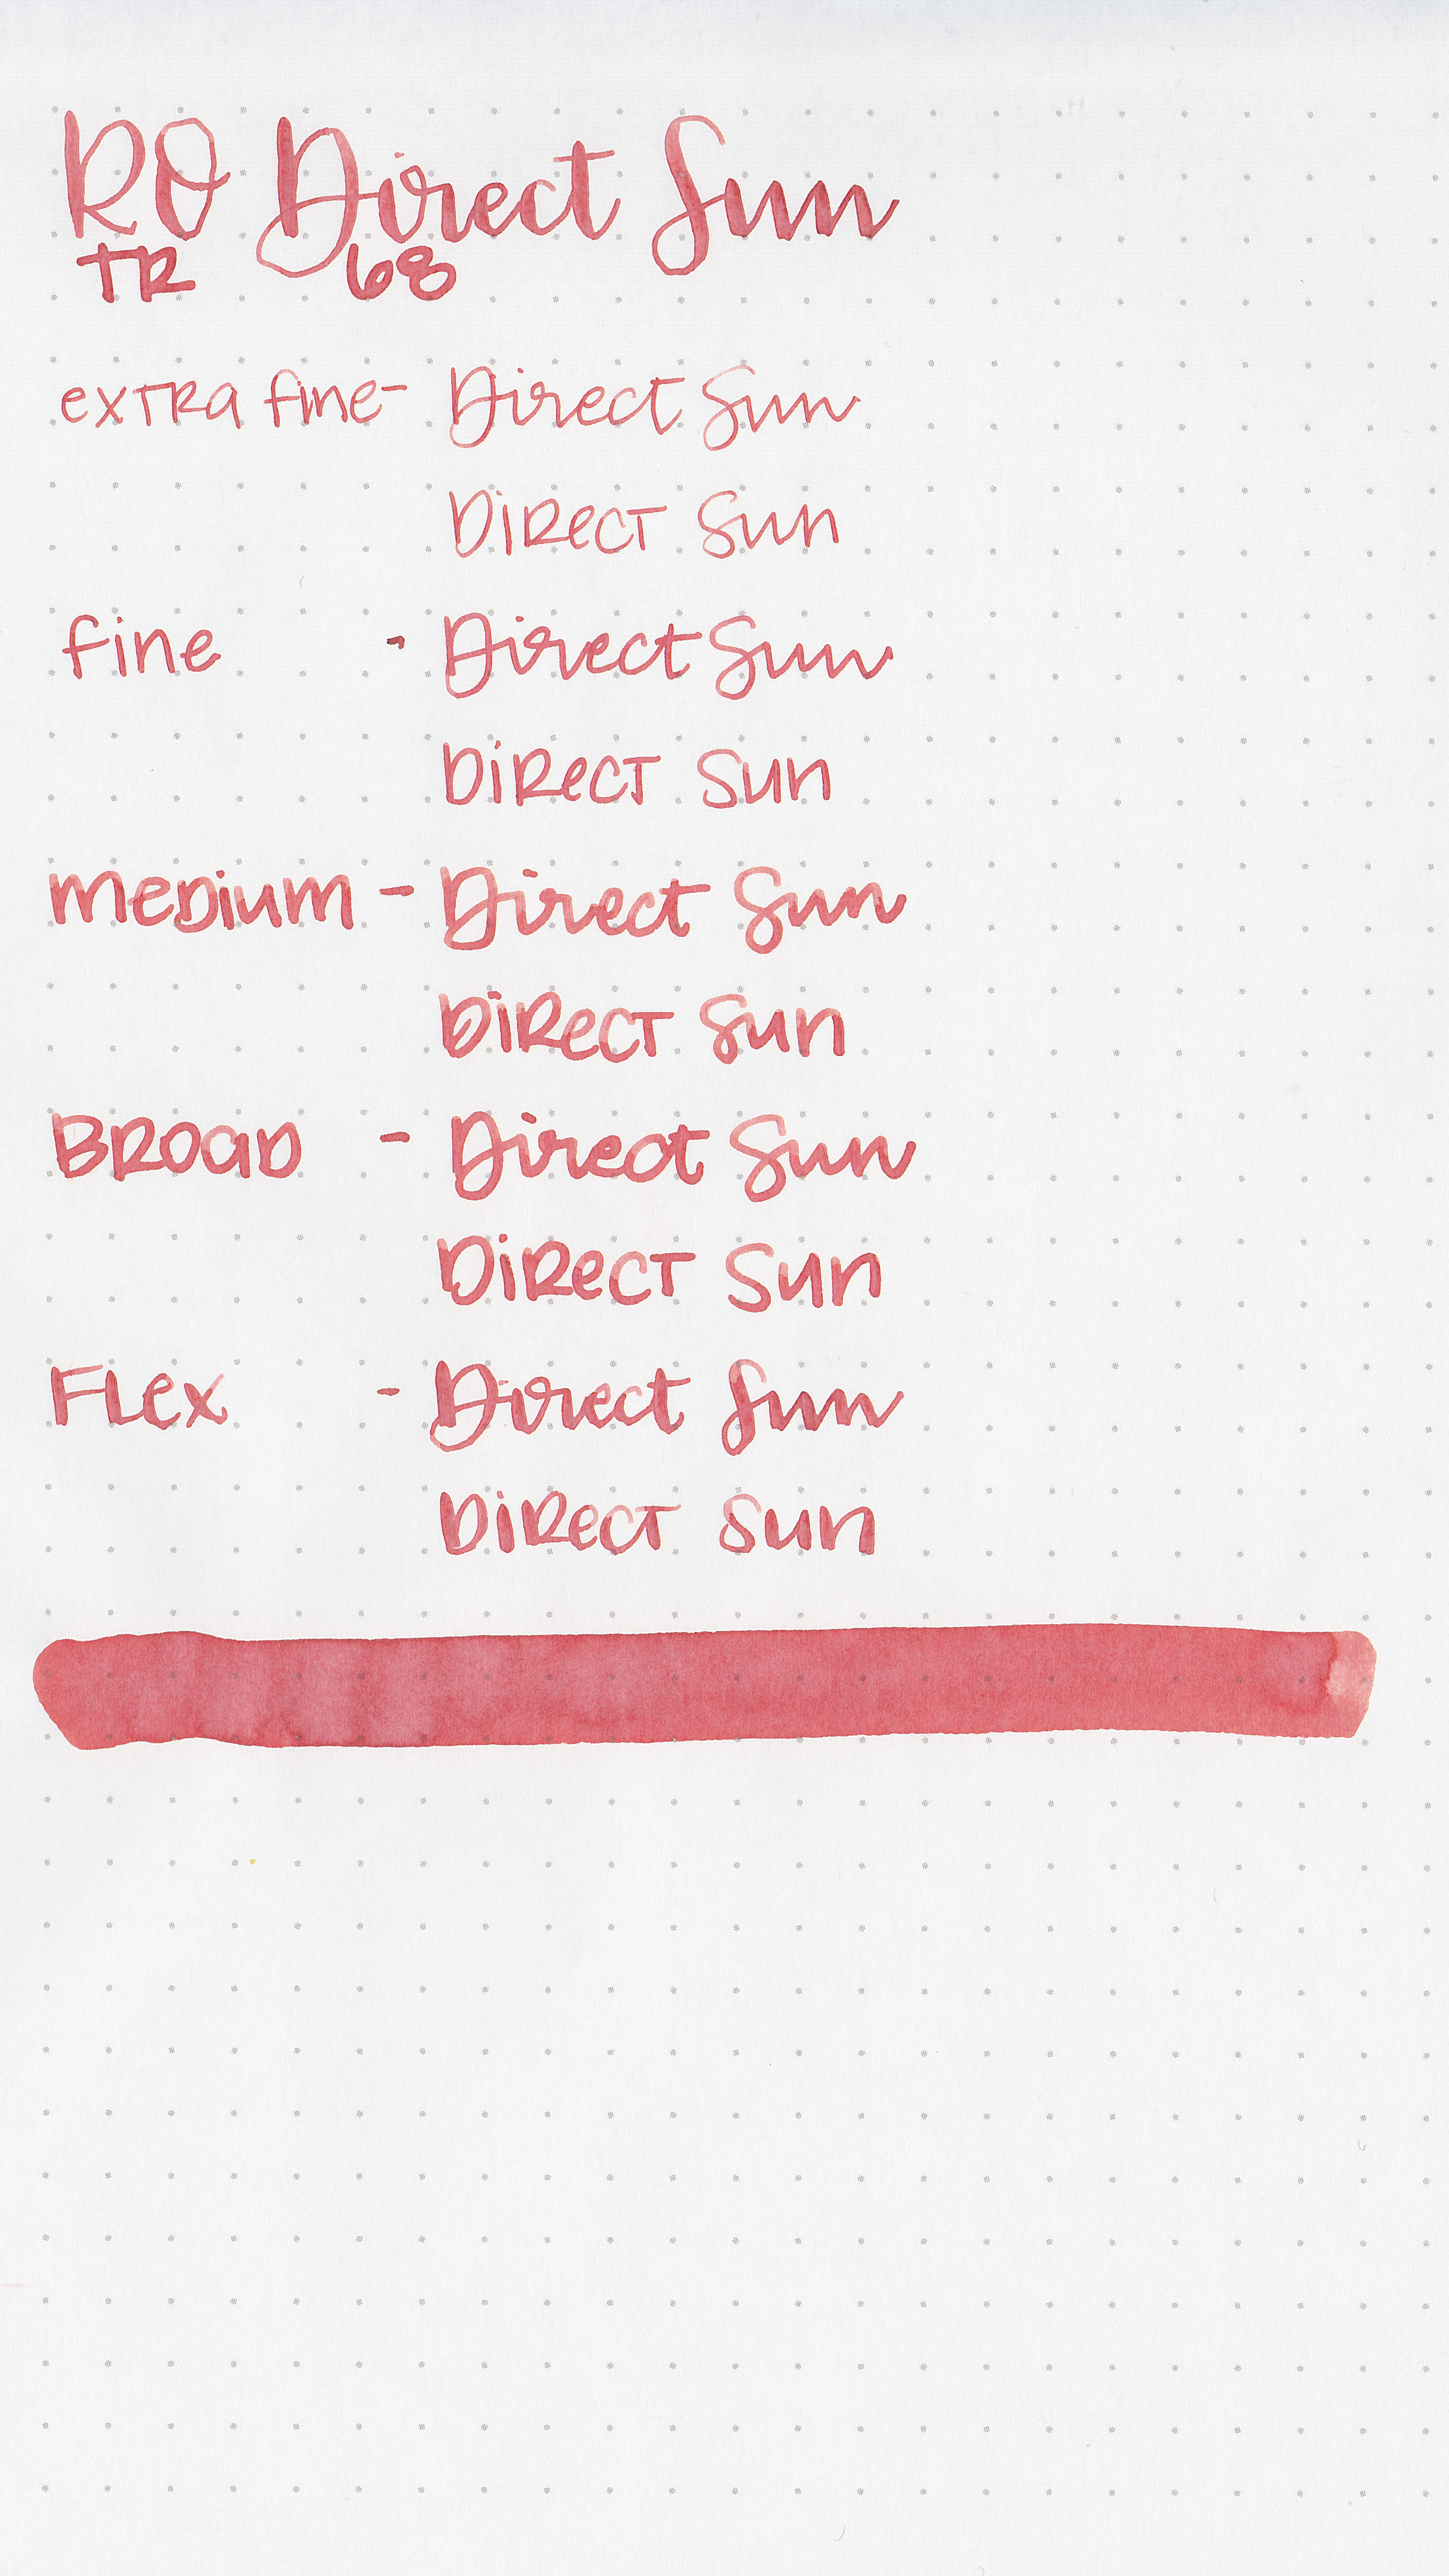 RO Direct Sun
TR 68
extra fine - Direct Sun
Direct Sun
fine - Direct Sun
Direct Sun
Medium - Direct Sun
Direct Sun
Broad - Direct Sun
Direct Sun
Flex - Direct Sun
Direct Sun